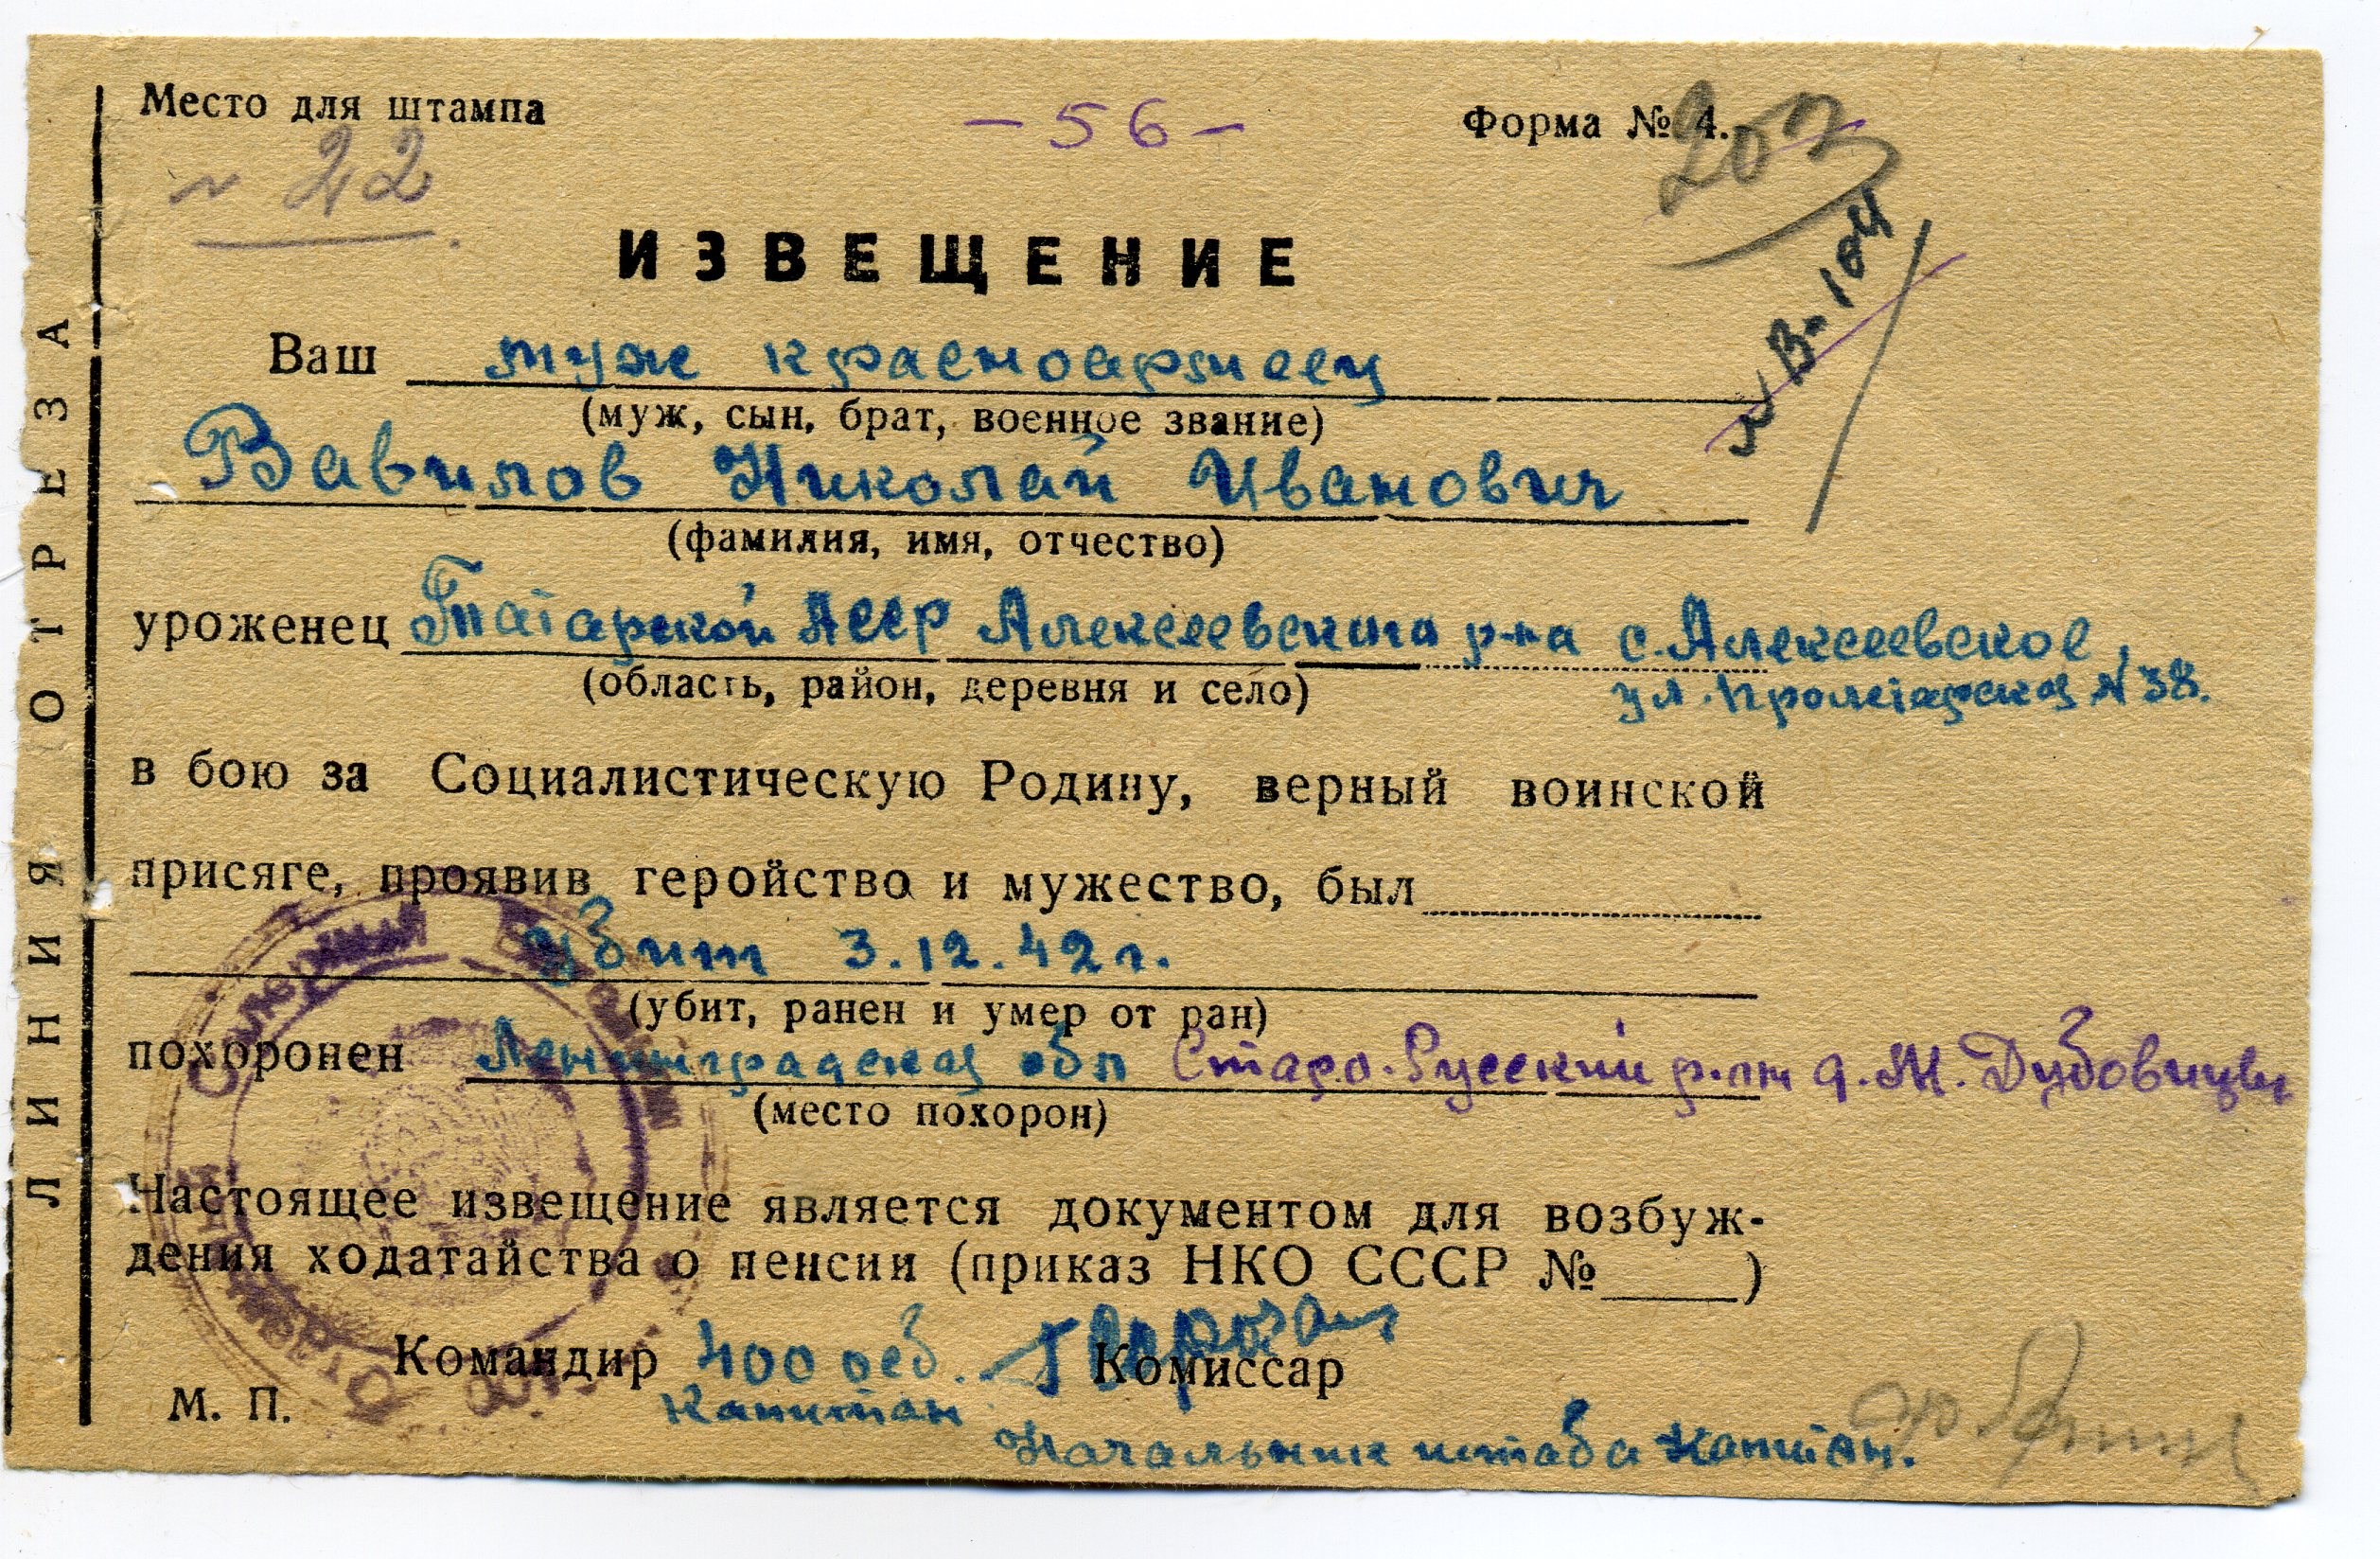 Место для штампа
- 56 -
Форма № 4.
203
N 22
N В-104
ИЗВЕЩЕНИЕ
Ваш муж красноармеец
(муж, сын, брат, военное звание)
Вавилов Николай Иванович
(фамилия, имя, отчество)
уроженец Татарской АССР Алексеевского р-на с. Алексеевское,
(область, район, деревня и село)
ул. Пролетарская N 38.
в бою за Социалистическую Родину, верный воинской
присяге, проявив геройство и мужество, был
убит 3.12.42 г.
(убит, ранен и умер от ран)
похоронен Ленинградская обл Старо-Русский р-он д. М. Дубовицы
(место похорон)
Настоящее извещение является документом для возбуж-
дения ходатайства о пенсии (приказ НКО СССР № )
Командир 400 осб.
Комиссар
Капитан
М. П.
Начальник штаба Капитан.
ЛИНИЯ ОТРЕЗА